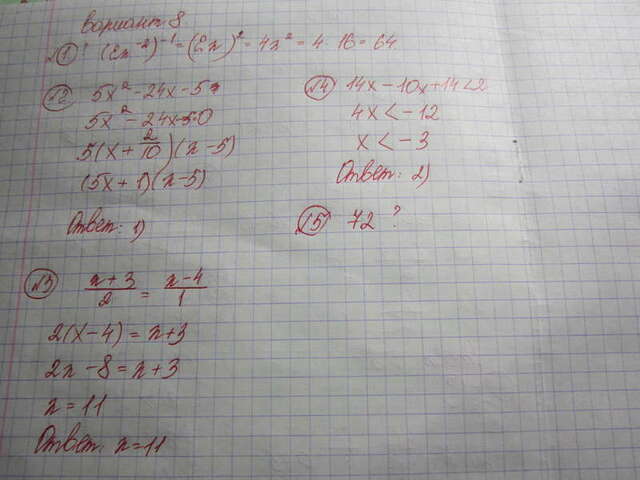 вариант 8
№1 (2x⁻¹)⁻² = (2x)² = 4x² = 4·16 = 64
№2 5x² - 24x - 5 =
5x² - 24x - 5 = 0
5(x + 2/10)(x - 5)
(5x + 1)(x - 5)
Ответ: 1)
№3 x+3/2 = x-4/1
2(x - 4) = x + 3
2x - 8 = x + 3
x = 11
Ответ: x = 11
№4 14x - 10x + 14 < 2
4x < -12
x < -3
Ответ: 2)
№5 72 ?